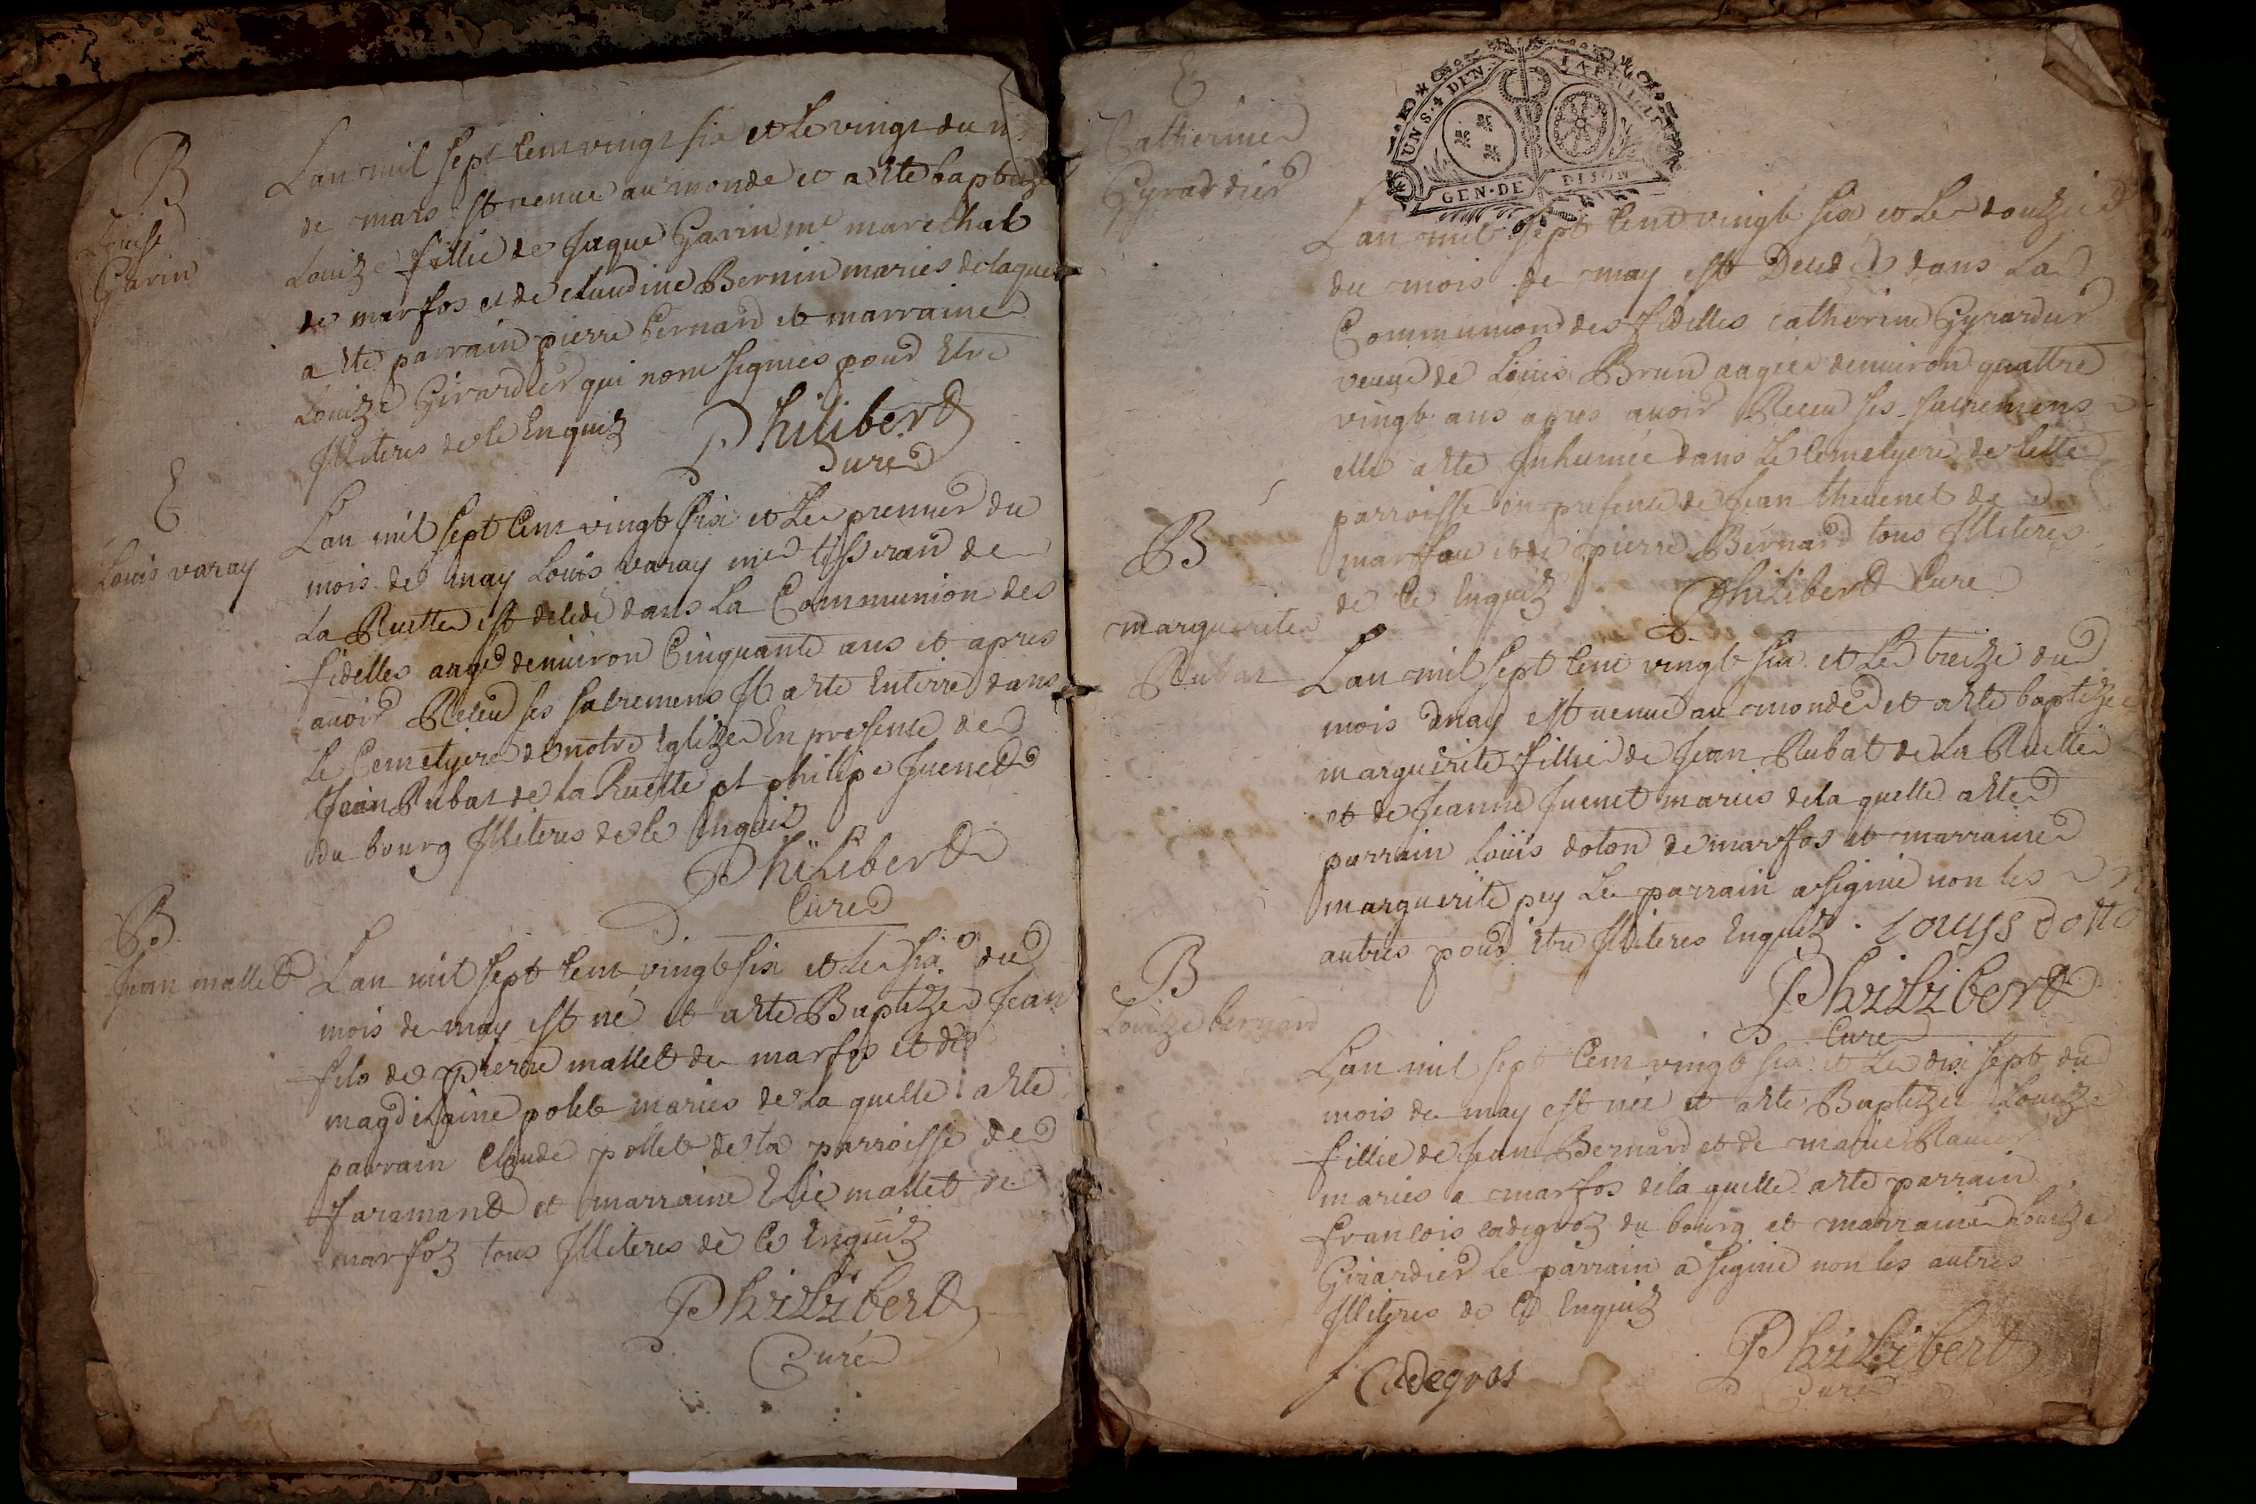 B
Louise
Garin
Lan mil sept cent vingt six et le vingt du
de mars est venue au monde et a este baptizée
Louize fillie de Jaque Garin me marechal
de marfos et de claudine Bernin mariés de laquelle
a este parrain pierre bernard et marraine
Louize Girardier qui nont signies pour etre
Illiteres de ce Enquiz
Philiberd
Curé
E
Louis varay
Lan mil sept cent vingt six et Le premier du
mois de may Louis varay me tisserand de
La Ruette est decedé dans La Communion des
fidelles aagé denuiron Cinquante ans et apres
auoir Receu ses sacremens Il a este Enterré dans
Le Cemetyere de notre Eglize En presence de
Jean Rubat de La Ruette et philipe Juenet
du bourg Illiteres de ce Enquiz
Philiberd
Curé
B
Jean mallet
Lan mil sept cent vingt six et Le six du
mois de may est né et a este Baptize Jean
fils de Pierre mallet de marfos et de
magdelaine polet mariés de La quelle a este
parrain Claude pollet de la parroisse de
faramand et marraine Elie mallet de
marfoz tous Illiteres de ce Enquiz
Philiberd
Curé
E
Catherine
Gyrardier
UN S. 4 DEN.
GEN. DE DIJON
Lan mil sept cent vingt six et Le douzie
du mois de may est Decedée dans La
Communion des fidelles Catherine Gyrardier
veuue de Louis Brun aagée denuiron quattre
vingt ans apres auoir Receu ses sacremens
elle a este Inhumée dans Le Cemetyere de cette
parroisse en presence de Jean theuenet de
marfou et de pierre Bernard tous Illiteres
de Ce Enquiz Philiberd Curé
B
marguerite
Rubat
Lan mil sept cent vingt six et Le treize du
mois de may est venue au monde et a este baptizée
marguerite fillie de Jean Rubat de La Ruette
et de Jeanne Juenet mariés de la quelle a este
parrain Louis doton de marfos et marraine
marguerite pey Le parrain a signié non les
autres pour etre Illiteres Enquiz. Louys
Philiberd
Curé
B
Louize bernard
Lan mil sept cent vingt six et Le dix sept du
mois de may est née et a este Baptizée Louize
fillie de Jean Bernard et de marie
mariés a marfos de la quelle a este parrain
francois cadegroz du bourg et marraine Louize
Girardier Le parrain a signié non les autres
Illiteres de Ce Enquiz
f Cadegros
Philiberd
Curé